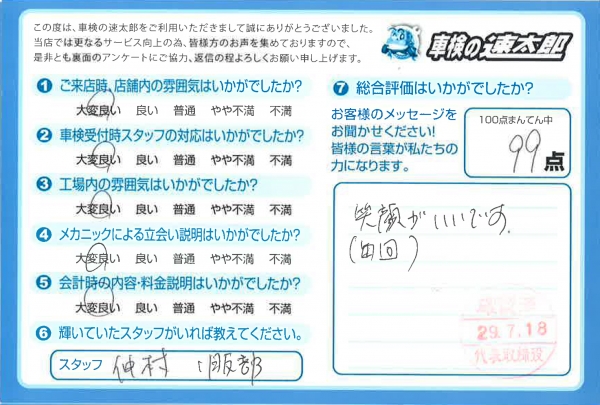 この度は、車検の速太郎をご利用いただきまして誠にありがとうございました。
当店では更なるサービス向上の為、皆様方のお声を集めておりますので、
是非とも裏面のアンケートにご協力、返信の程よろしくお願い申し上げます。
車検の速太郎
1 ご来店時、店舗内の雰囲気はいかがでしたか?
大変良い 良い 普通 やや不満 不満
2 車検受付時スタッフの対応はいかがでしたか?
大変良い 良い 普通 やや不満 不満
3 工場内の雰囲気はいかがでしたか?
大変良い 良い 普通 やや不満 不満
4 メカニックによる立会い説明はいかがでしたか?
大変良い 良い 普通 やや不満 不満
5 会計時の内容・料金説明はいかがでしたか?
大変良い 良い 普通 やや不満 不満
6 輝いていたスタッフがいれば教えてください。
スタッフ 仲村 服部
7 総合評価はいかがでしたか?
お客様のメッセージを
お聞かせください!
皆様の言葉が私たちの
力になります。
100点まんてん中
99点
笑顔がいいです。
29.7.18
代表取締役